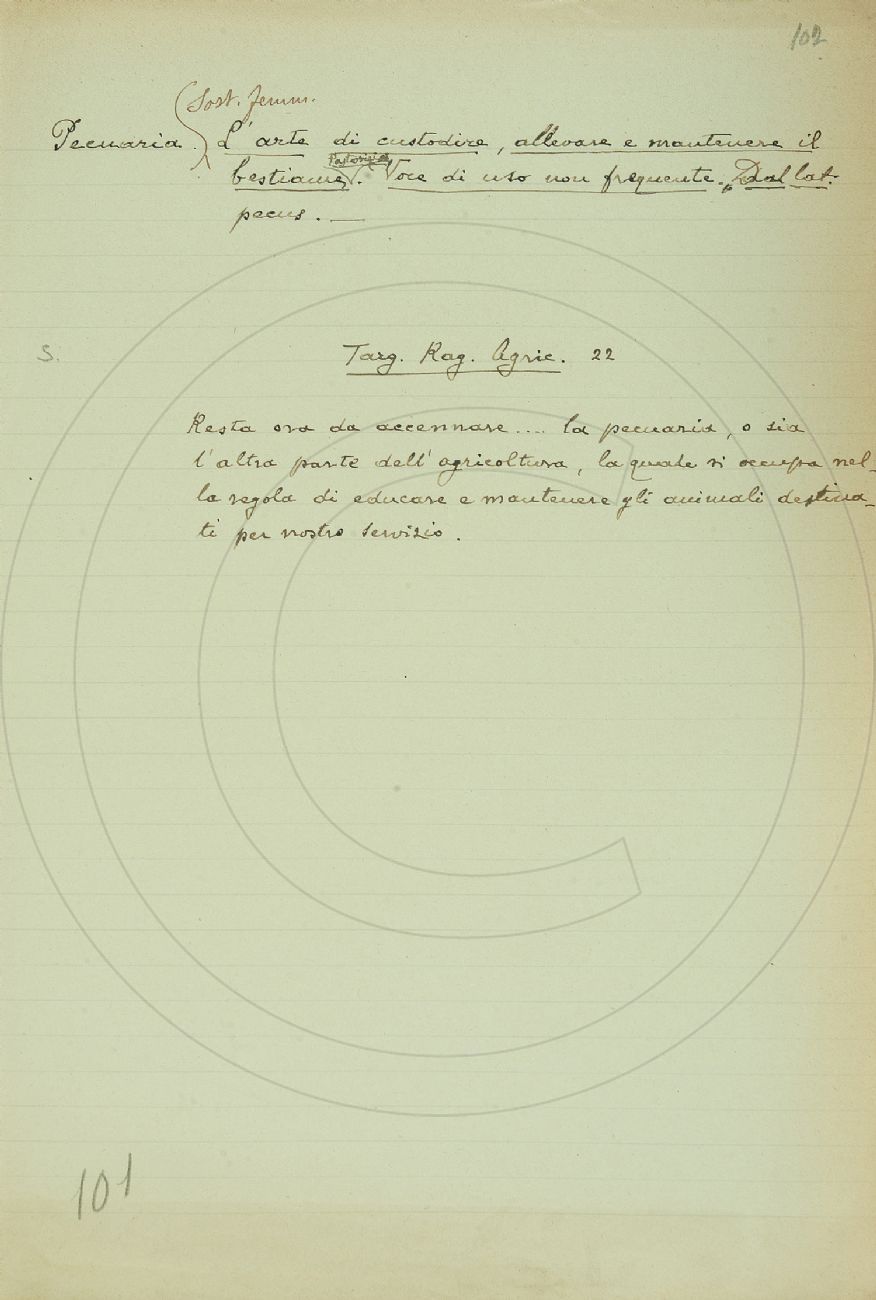 102
Sost. femm.
Pecuaria. L'arte di custodire, allevare e mantenere il
Pastorizia
bestiame. Voce di uso non frequente. Dal lat.
pecus. —
S.
Targ. Rag. Agric. 22
Resta ora da accennare.... la pecuaria, o sia
l'altra parte dell'agricoltura, la quale si occupa nel-
la regola di educare e mantenere gli animali destina-
ti per nostro servizio.
101